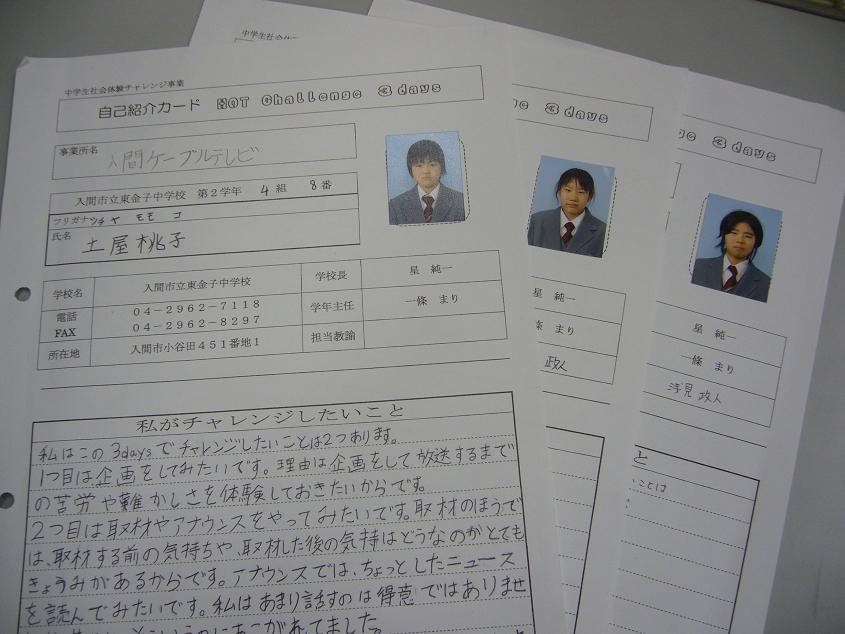 中学生社会体験チャレンジ事業
自己紹介カード HOT Challenge 3 days
事業所名 入間ケーブルテレビ
入間市立東金子中学校 第2学年 4組 8番
フリガナ ツチヤ モモコ
氏名 土屋桃子
学校名 入間市立東金子中学校 学校長 星 純一
電話 04-2962-7118 学年主任 一條 まり
FAX 04-2962-8297
所在地 入間市小谷田451番地1 担当教諭
私がチャレンジしたいこと
私はこの3daysでチャレンジしたいことは2つあります。
1つ目は企画をしてみたいです。理由は企画をして放送するまで
の苦労や難かしさを体験しておきたいからです。
2つ目は取材やアナウンスをやってみたいです。取材のほうで
は、取材する前の気持ちや、取材した後の気持はどうなのかとても
きょうみがあるからです。アナウンスでは、ちょっとしたニュース
を読んでみたいです。私はあまり話すのは得意ではありませ
中学生社会体
3 days
星 純一
條 まり
政人
3 days
星 純一
一條 まり
浮見 政人
と
いことは